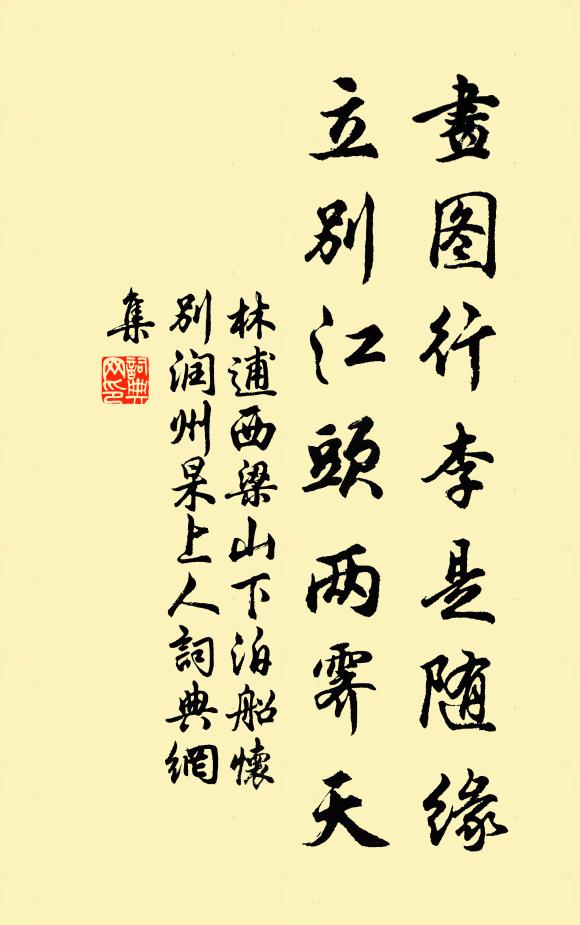 畫图行李是随緣
立別江頭两霽天
林逋西梁山下泊船懷
別润州杲上人詞典網
集
詞典
网印